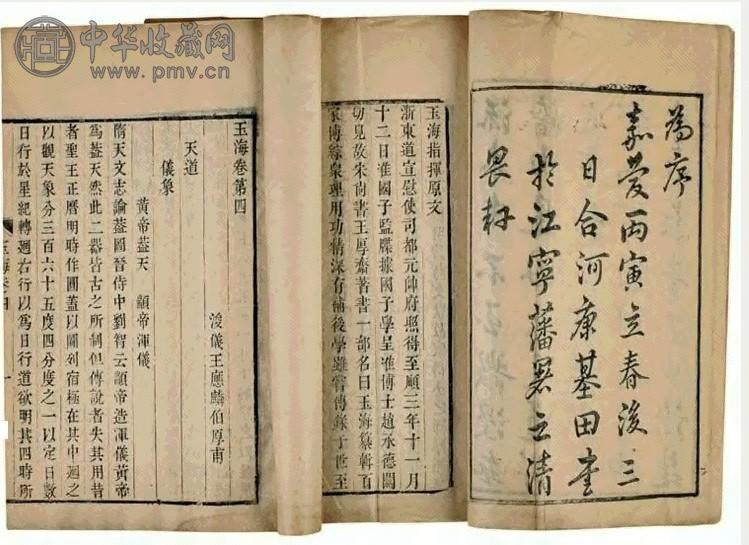 中华收藏网
www.pmv.cn
為序
嘉慶丙寅立春後三
日合河康基田書
於江寧藩署之清
畏軒
玉海指揮原文
浙東道宣慰使司都元帥府照得至順三年十一月
十二日准國子監牒據國子學呈准博士趙承德關
切見故宋尚書王厚齋著書一部名曰玉海纂輯百
家博綜衆理用功精深有補後學雖嘗傳錄于世至
玉海卷第四
浚儀王應麟伯厚甫
天道
儀象
黃帝葢天 顓帝渾儀
隋天文志論葢圖晉侍中劉智云顓帝造渾儀黃帝
為葢天然此二器皆古之所制但傳說者失其用昔
者聖王正曆明時作圓葢以圖列宿極在其中廻之
以觀天象分三百六十五度四分度之一以定日數
日行於星紀轉廻右行以爲日行道欲明其四時所
玉海卷四
一